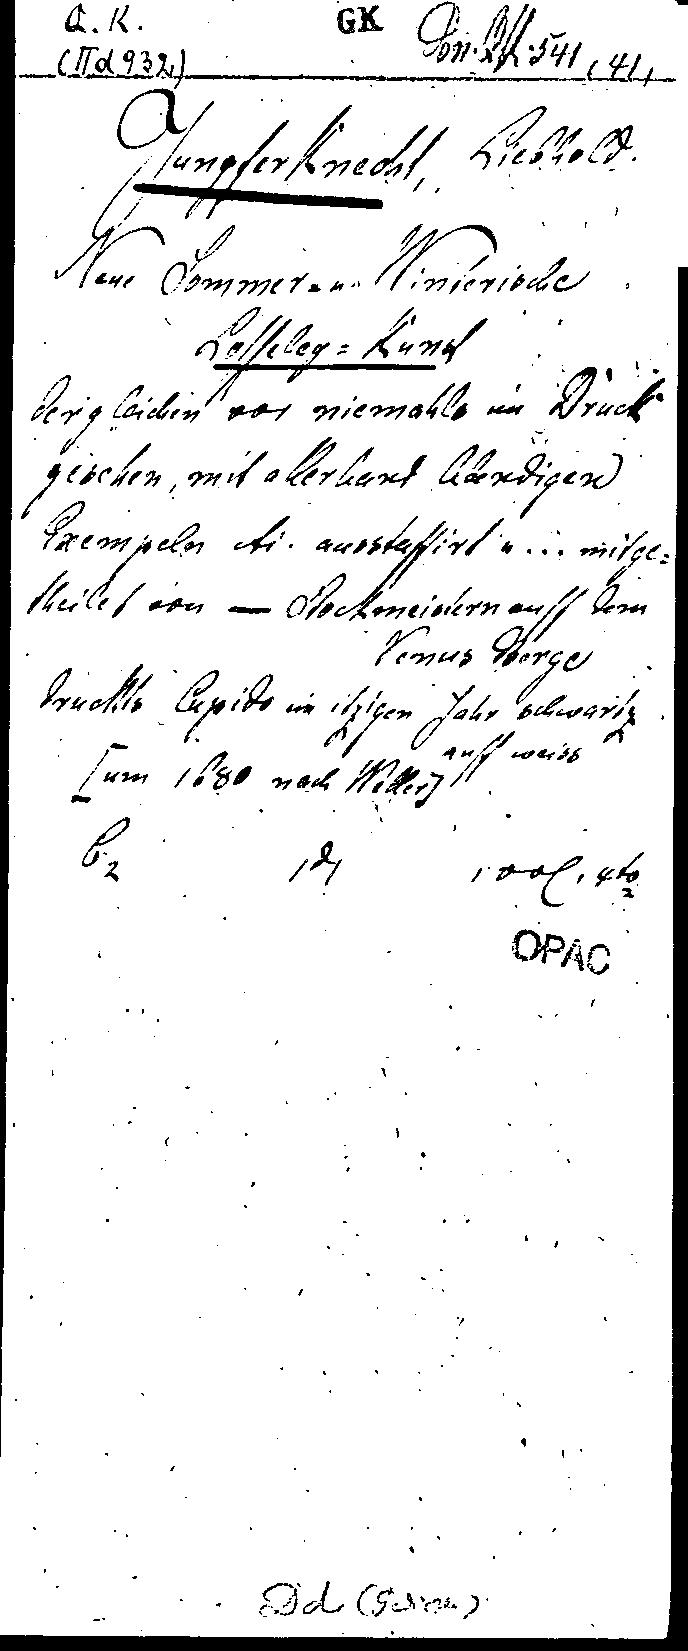 Q. K.
GK
Don. 541, (41)
(IId 932)
Jungferknecht, Liebhold.
Neue Sommer- u. Winterische
Leffeley-Kunst
dergleichen vor niemahls im Druck
gesehen, mit allerhand lebendigen
Exempeln etc. ausstaffirt u ... mitge-
theilet von — Stockmeistern auff dem
Venus Berge
druckts Cupido im itzigen Jahr schwartz
auff weiss
[um 1680 nach Weller]
OPAC